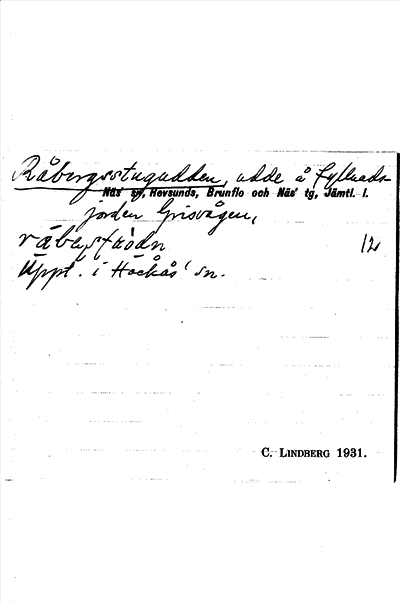 Råbergsstugudden, udde å Fyllnads-
Näs' sn, Hovsunds, Brunflo och Näs' tg, Jämtl. l.
jorden Grisvågen,
12
Uppt. i Hackås' sn.
C. LINDBERG 1931.